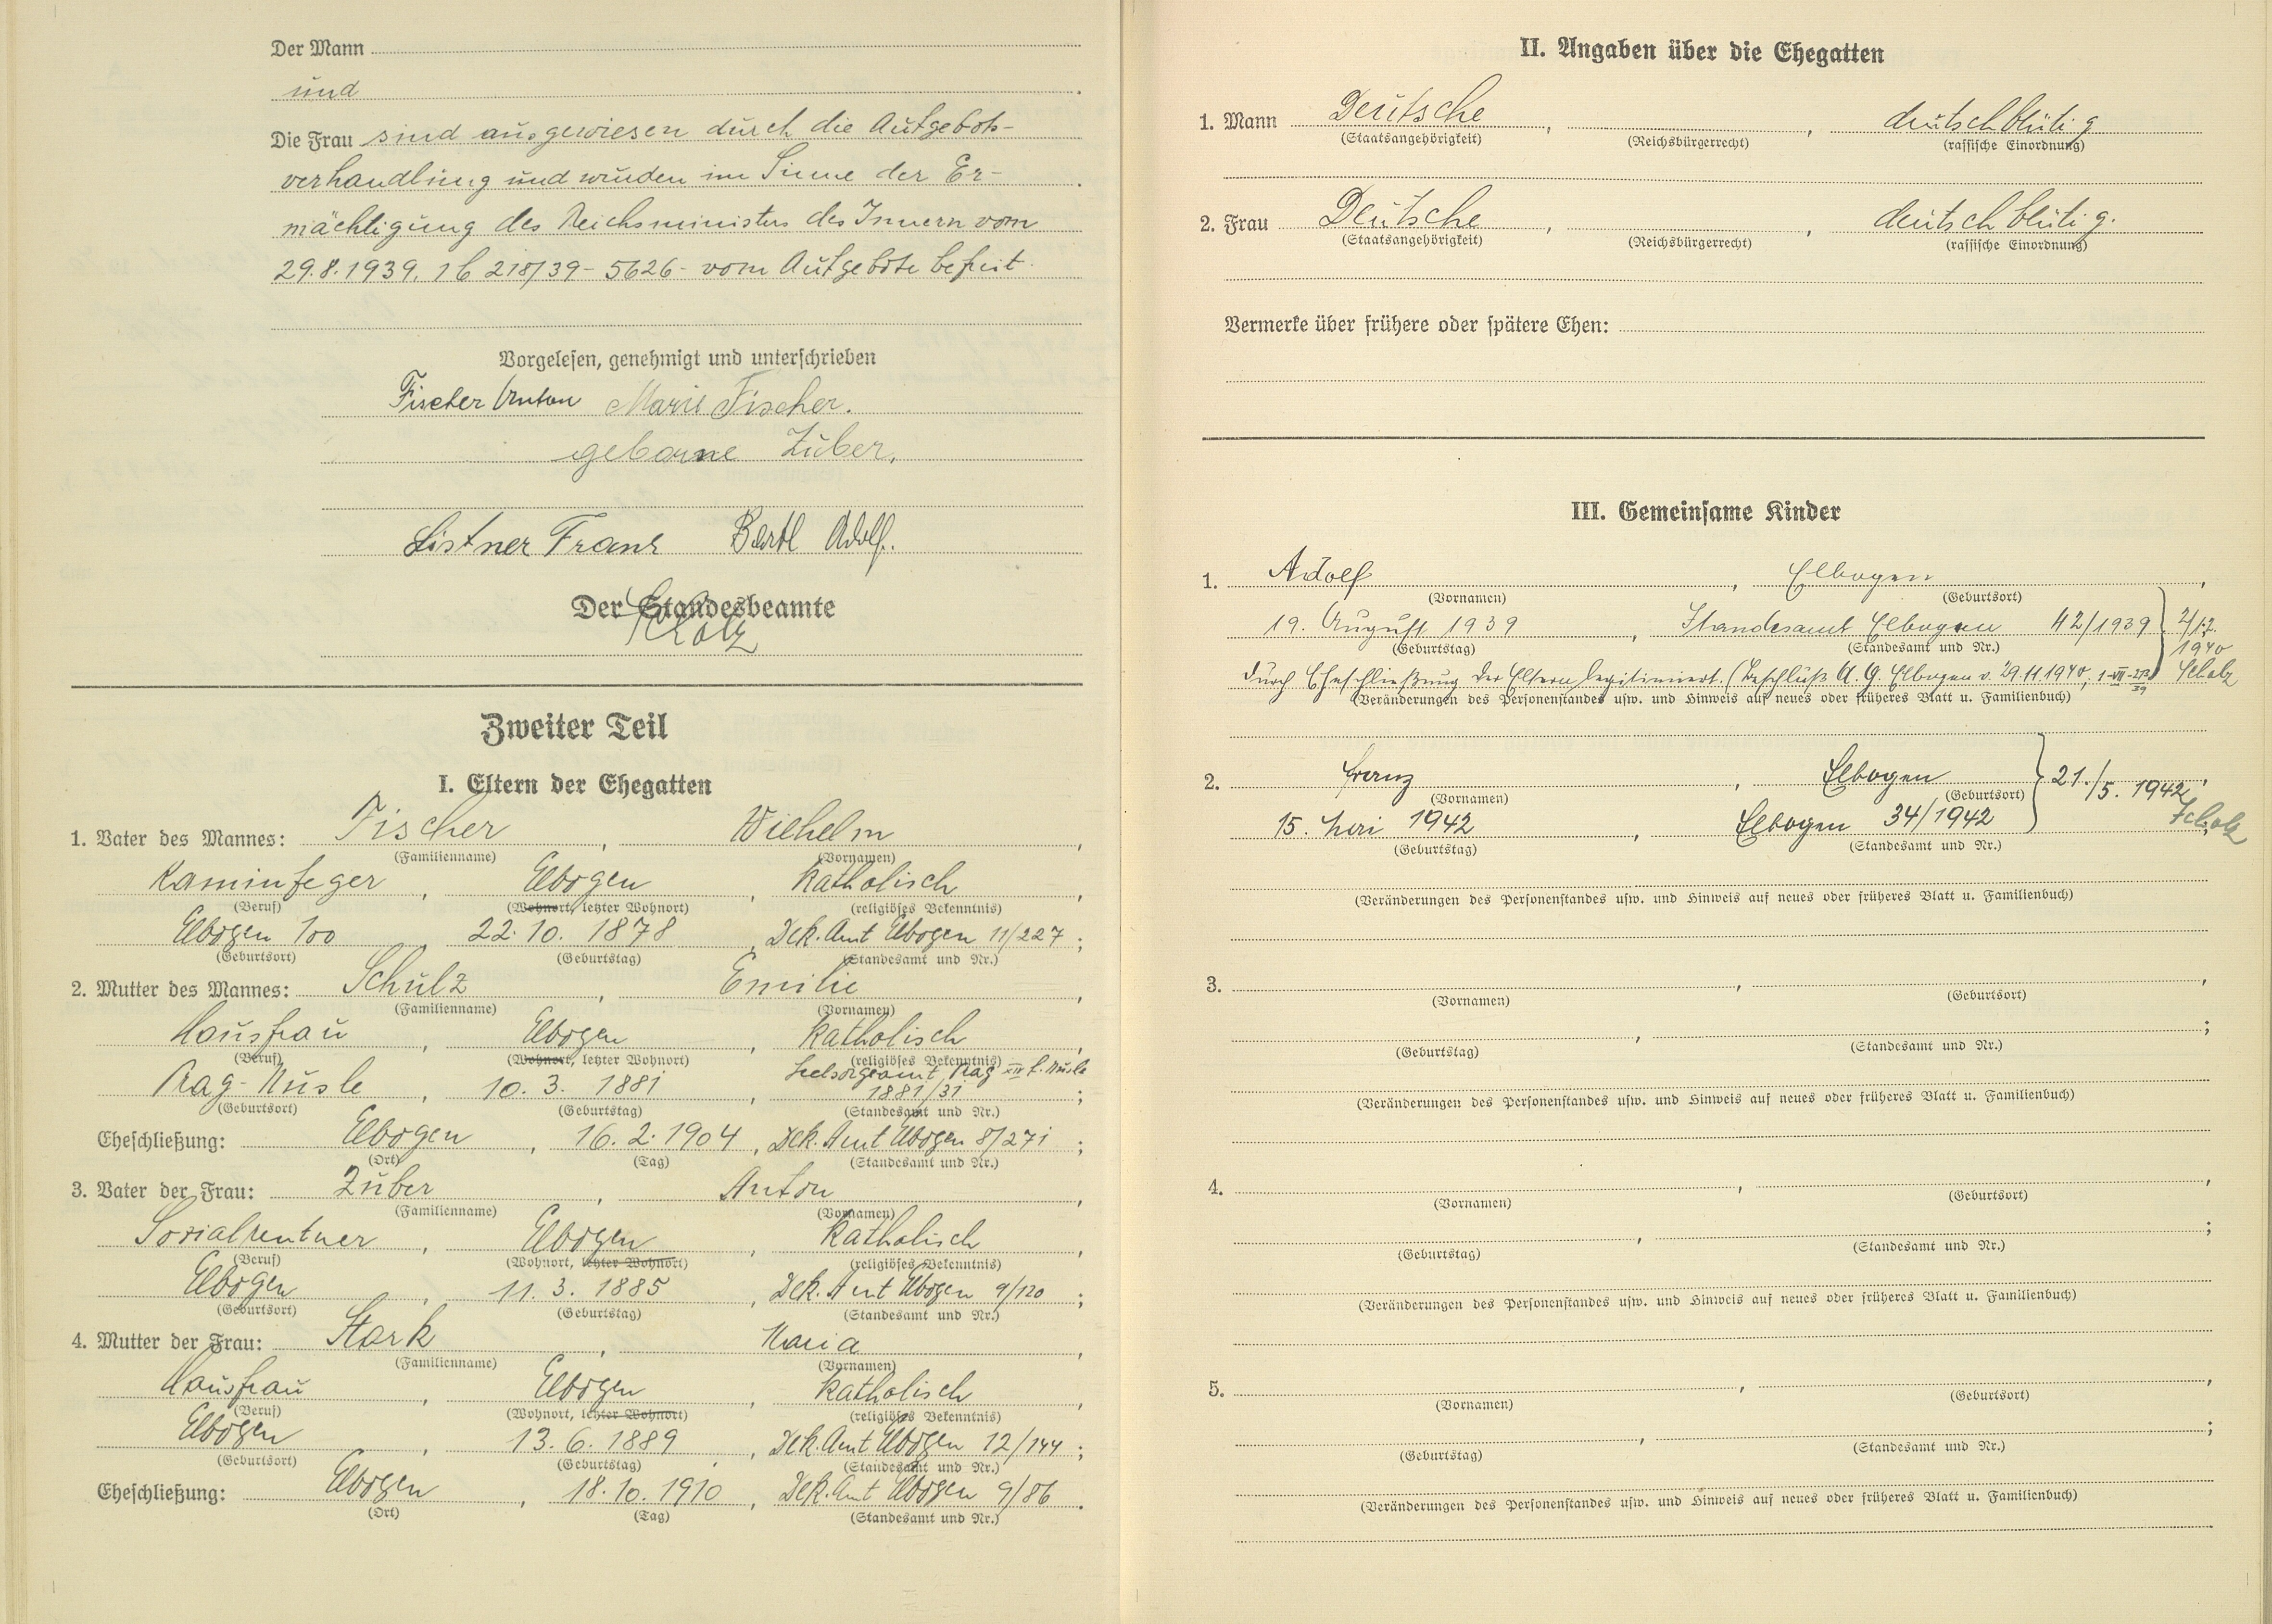 Der Mann
und
Die Frau sind ausgewiesen durch die Aufgebots-
verhandlung und wurden im Sinne der Er-
mächtigung des Reichsministers des Innern vom
29.8.1939, 1b 218/39 - 5626 - vom Aufgebote befreit.
Vorgelesen, genehmigt und unterschrieben
Fischer Anton Marie Fischer.
geborne Zuber.
Listner Franz Bartl Adolf.
Der Standesbeamte
Scholz
Zweiter Teil
I. Eltern der Ehegatten
1. Vater des Mannes: Fischer, Wilhelm,
(Familienname) (Vornamen)
Kaminfeger, Elbogen, katholisch,
(Beruf) (Wohnort, letzter Wohnort) (religiöses Bekenntnis)
Elbogen 100, 22.10.1878, Dek. Amt Elbogen 11/227;
(Geburtsort) (Geburtstag) (Standesamt und Nr.)
2. Mutter des Mannes: Schulz, Emilie,
(Familienname) (Vornamen)
Hausfrau, Elbogen, katholisch,
(Beruf) (Wohnort, letzter Wohnort) (religiöses Bekenntnis)
Seelsorgeamt Prag XIV f. Nusle
Prag-Nusle, 10.3.1881, 1881/31;
(Geburtsort) (Geburtstag) (Standesamt und Nr.)
Eheschließung: Elbogen, 16.2.1904, Dek. Amt Elbogen 8/271;
(Ort) (Tag) (Standesamt und Nr.)
3. Vater der Frau: Zuber, Anton,
(Familienname) (Vornamen)
Sozialrentner, Elbogen, katholisch,
(Beruf) (Wohnort, letzter Wohnort) (religiöses Bekenntnis)
Elbogen, 11.3.1885, Dek. Amt Elbogen 9/120;
(Geburtsort) (Geburtstag) (Standesamt und Nr.)
4. Mutter der Frau: Stark, Maria,
(Familienname) (Vornamen)
Hausfrau, Elbogen, katholisch,
(Beruf) (Wohnort, letzter Wohnort) (religiöses Bekenntnis)
Elbogen, 13.6.1889, Dek. Amt Elbogen 12/144;
(Geburtsort) (Geburtstag) (Standesamt und Nr.)
Eheschließung: Elbogen, 18.10.1910, Dek. Amt Elbogen 9/86.
(Ort) (Tag) (Standesamt und Nr.)
II. Angaben über die Ehegatten
1. Mann Deutsche, , deutschblütig
(Staatsangehörigkeit) (Reichsbürgerrecht) (rassische Einordnung)
2. Frau Deutsche, , deutschblütig.
(Staatsangehörigkeit) (Reichsbürgerrecht) (rassische Einordnung)
Vermerke über frühere oder spätere Ehen:
III. Gemeinsame Kinder
1. Adolf, Elbogen,
(Vornamen) (Geburtsort)
19. August 1939, Standesamt Elbogen 42/1939 2/12.
(Geburtstag) (Standesamt und Nr.) 1940
durch Eheschließung der Eltern legitimiert. (Beschluß A. G. Elbogen v. 29.11.1940, Scholz
(Veränderungen des Personenstandes usw. und Hinweis auf neues oder früheres Blatt u. Familienbuch)
2. Franz, Elbogen 21./5. 1942,
(Vornamen) (Geburtsort)
15. Mai 1942, Elbogen 34/1942 Scholz
(Geburtstag) (Standesamt und Nr.)
(Veränderungen des Personenstandes usw. und Hinweis auf neues oder früheres Blatt u. Familienbuch)
3. , ,
(Vornamen) (Geburtsort)
, ;
(Geburtstag) (Standesamt und Nr.)
(Veränderungen des Personenstandes usw. und Hinweis auf neues oder früheres Blatt u. Familienbuch)
4. , ,
(Vornamen) (Geburtsort)
, ;
(Geburtstag) (Standesamt und Nr.)
(Veränderungen des Personenstandes usw. und Hinweis auf neues oder früheres Blatt u. Familienbuch)
5. , ,
(Vornamen) (Geburtsort)
, ;
(Geburtstag) (Standesamt und Nr.)
(Veränderungen des Personenstandes usw. und Hinweis auf neues oder früheres Blatt u. Familienbuch)